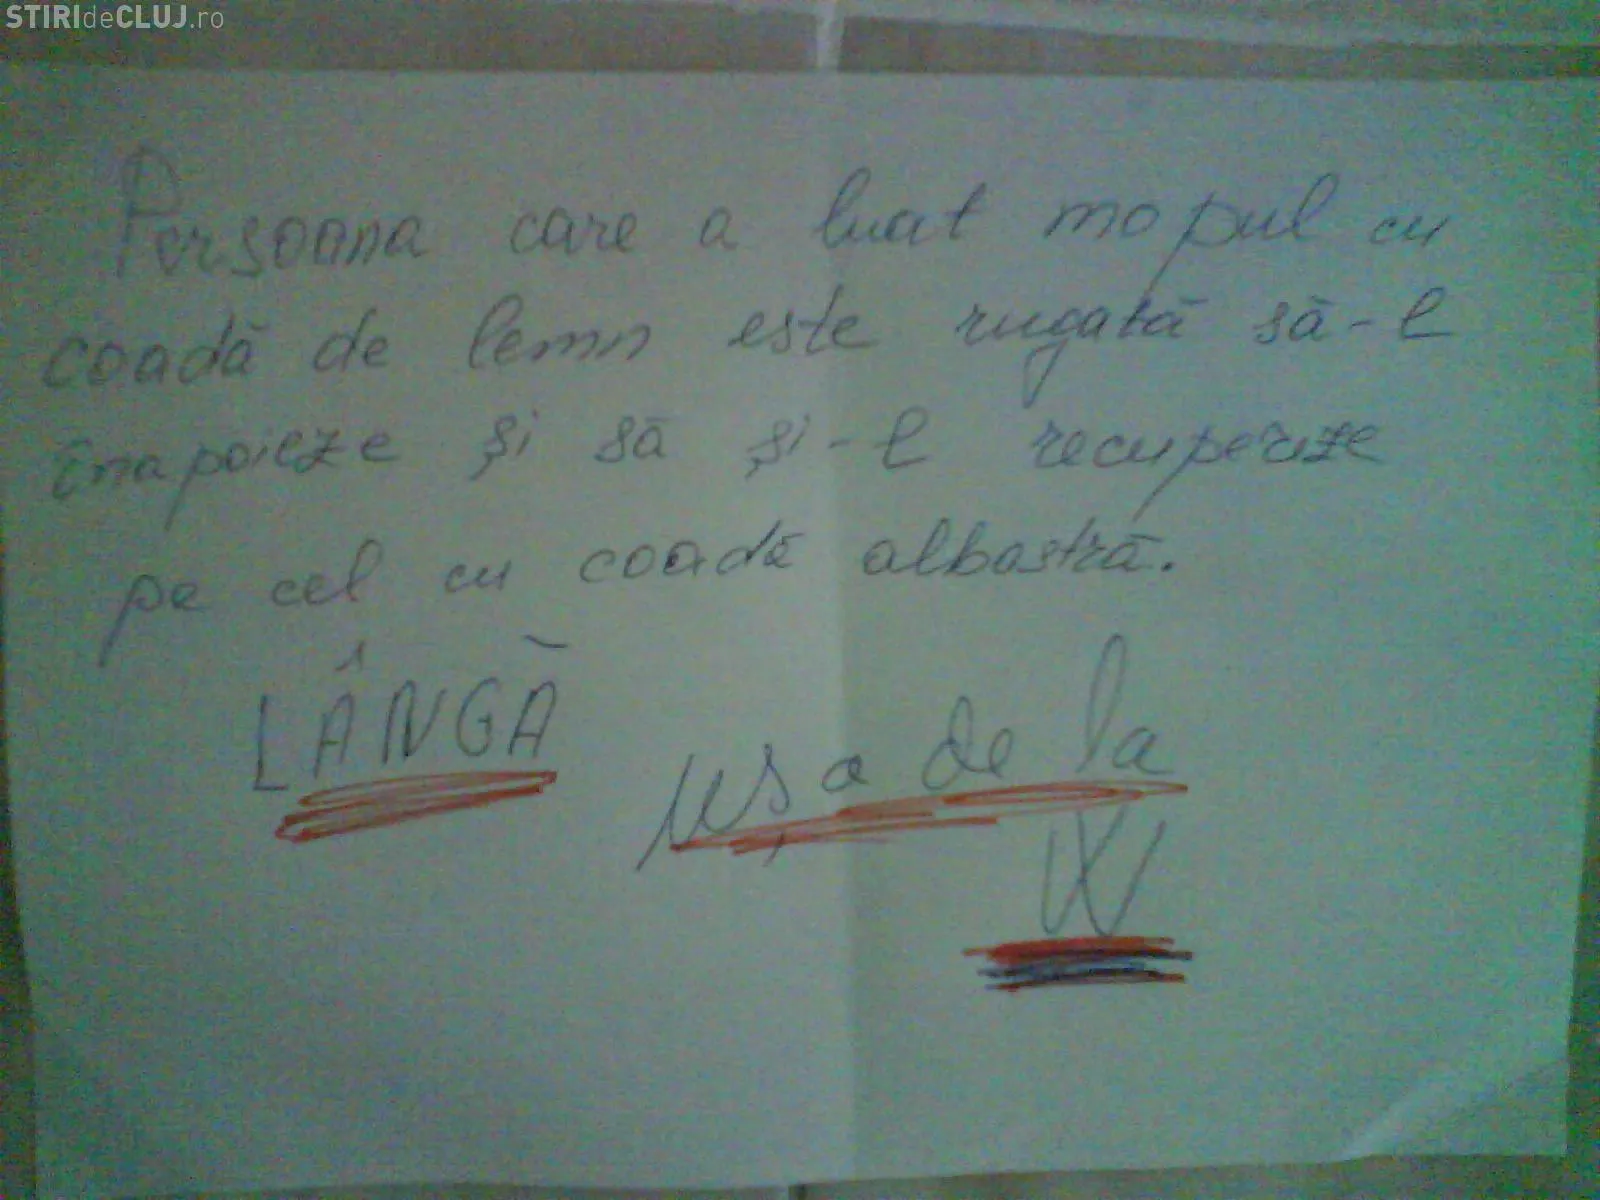 STIRIdeCLUJ.ro
Persoana care a luat mopul cu
coadă de lemn este rugată să-l
înapoieze și să și-l recupereze
pe cel cu coadă albastră.
LÂNGĂ
ușa de la
W